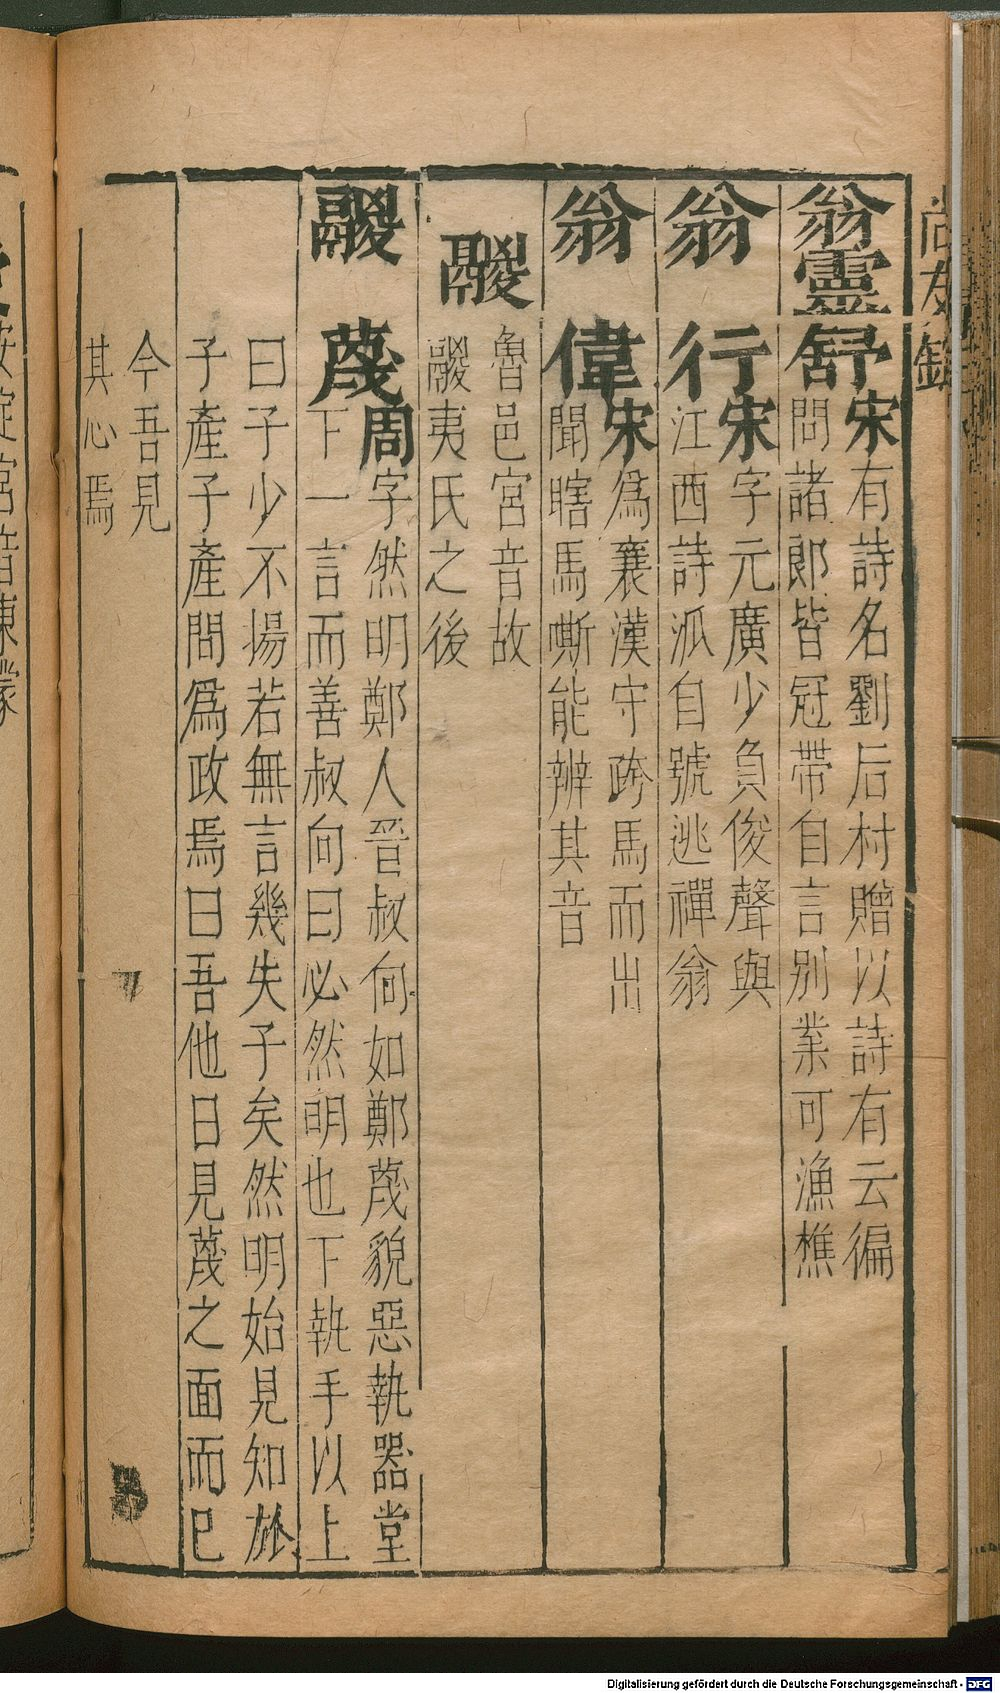 尚友錄
翁靈舒
宋有詩名劉后村贈以詩有云徧
問諸郎皆冠帶自言別業可漁樵
翁行
宋字元廣少負俊聲與
江西詩派自號逃禪翁
翁偉
宋爲襄漢守跨馬而出
聞瞎馬嘶能辨其音
鬷
魯邑宮音故
鬷夷氏之後
鬷蔑
周字然明鄭人晉叔向如鄭蔑貌惡執器堂
下一言而善叔向曰必然明也下執手以上
曰子少不揚若無言幾失子矣然明始見知於
子產子產問爲政焉曰吾他日見蔑之面而已
今吾見
其心焉
Digitalisierung gefördert durch die Deutsche Forschungsgemeinschaft - DFG